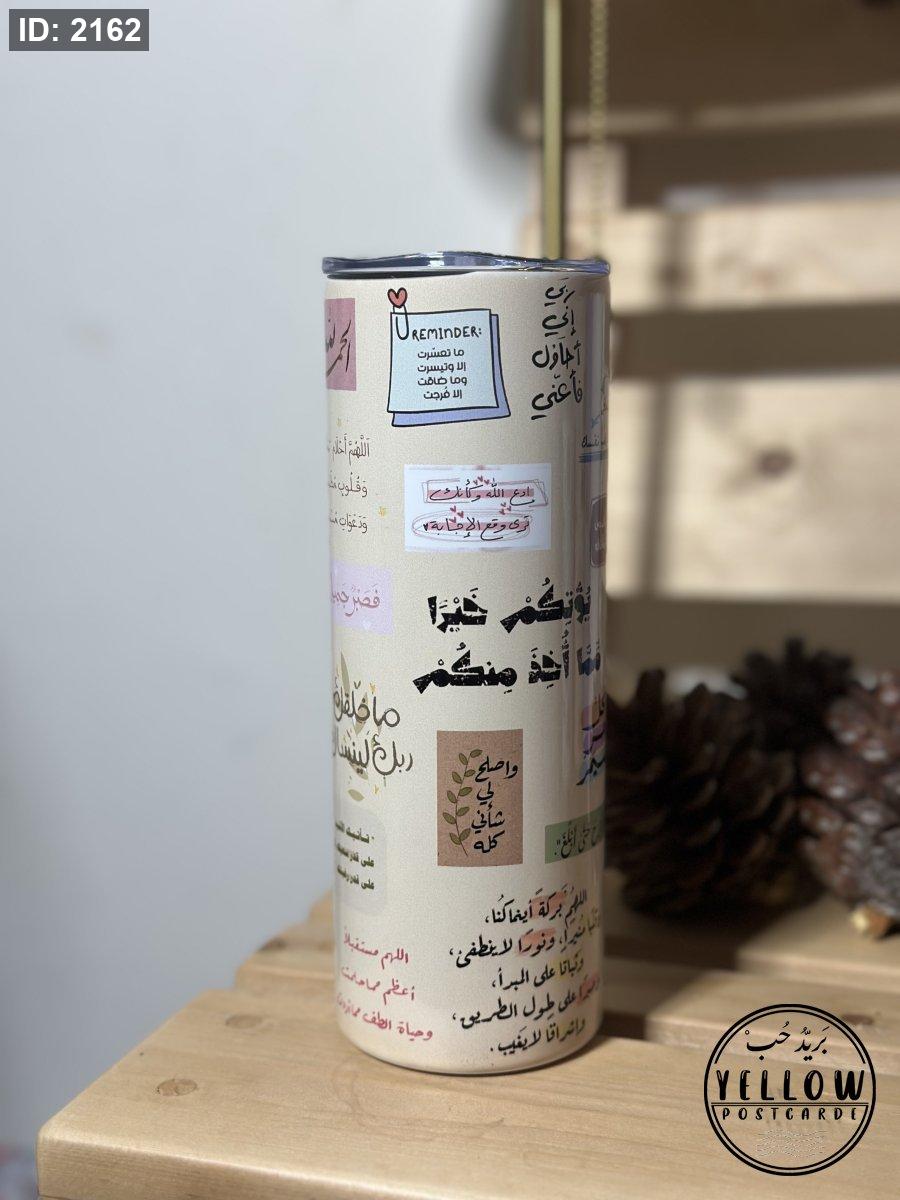 ID: 2162
REMINDER:
ما تعسّرت
إلا وتيسرت
وما ضاقت
إلا فُرجت
ربّي
إنّي
أحاول
فأعنّي
اَللَّهُمَّ أَحْلَام
وَقُلُوب
وَدَعَوَات
إدع الله وكأنك
ترى وقع الإجابة
فَصَبْرٌ جَمِيل
يُؤْتِكُمْ خَيْرًا
مِّمَّا أُخِذَ مِنكُمْ
ربك لينساك
واصلح
لي
شأني
كله
حَتَّى أَبْلُغَ".
على قدر
على قدر
اللهم بَركةً أينماكُنا،
ونورًا لاينطفئ،
وثباتا على المبدأ،
على طول الطريق،
وإشراقًا لايغيب.
اللهم مستقبلاً
أعظم مما حلمت
وحياة الطف مما
بَريدُ حُب
YELLOW
POSTCARDE